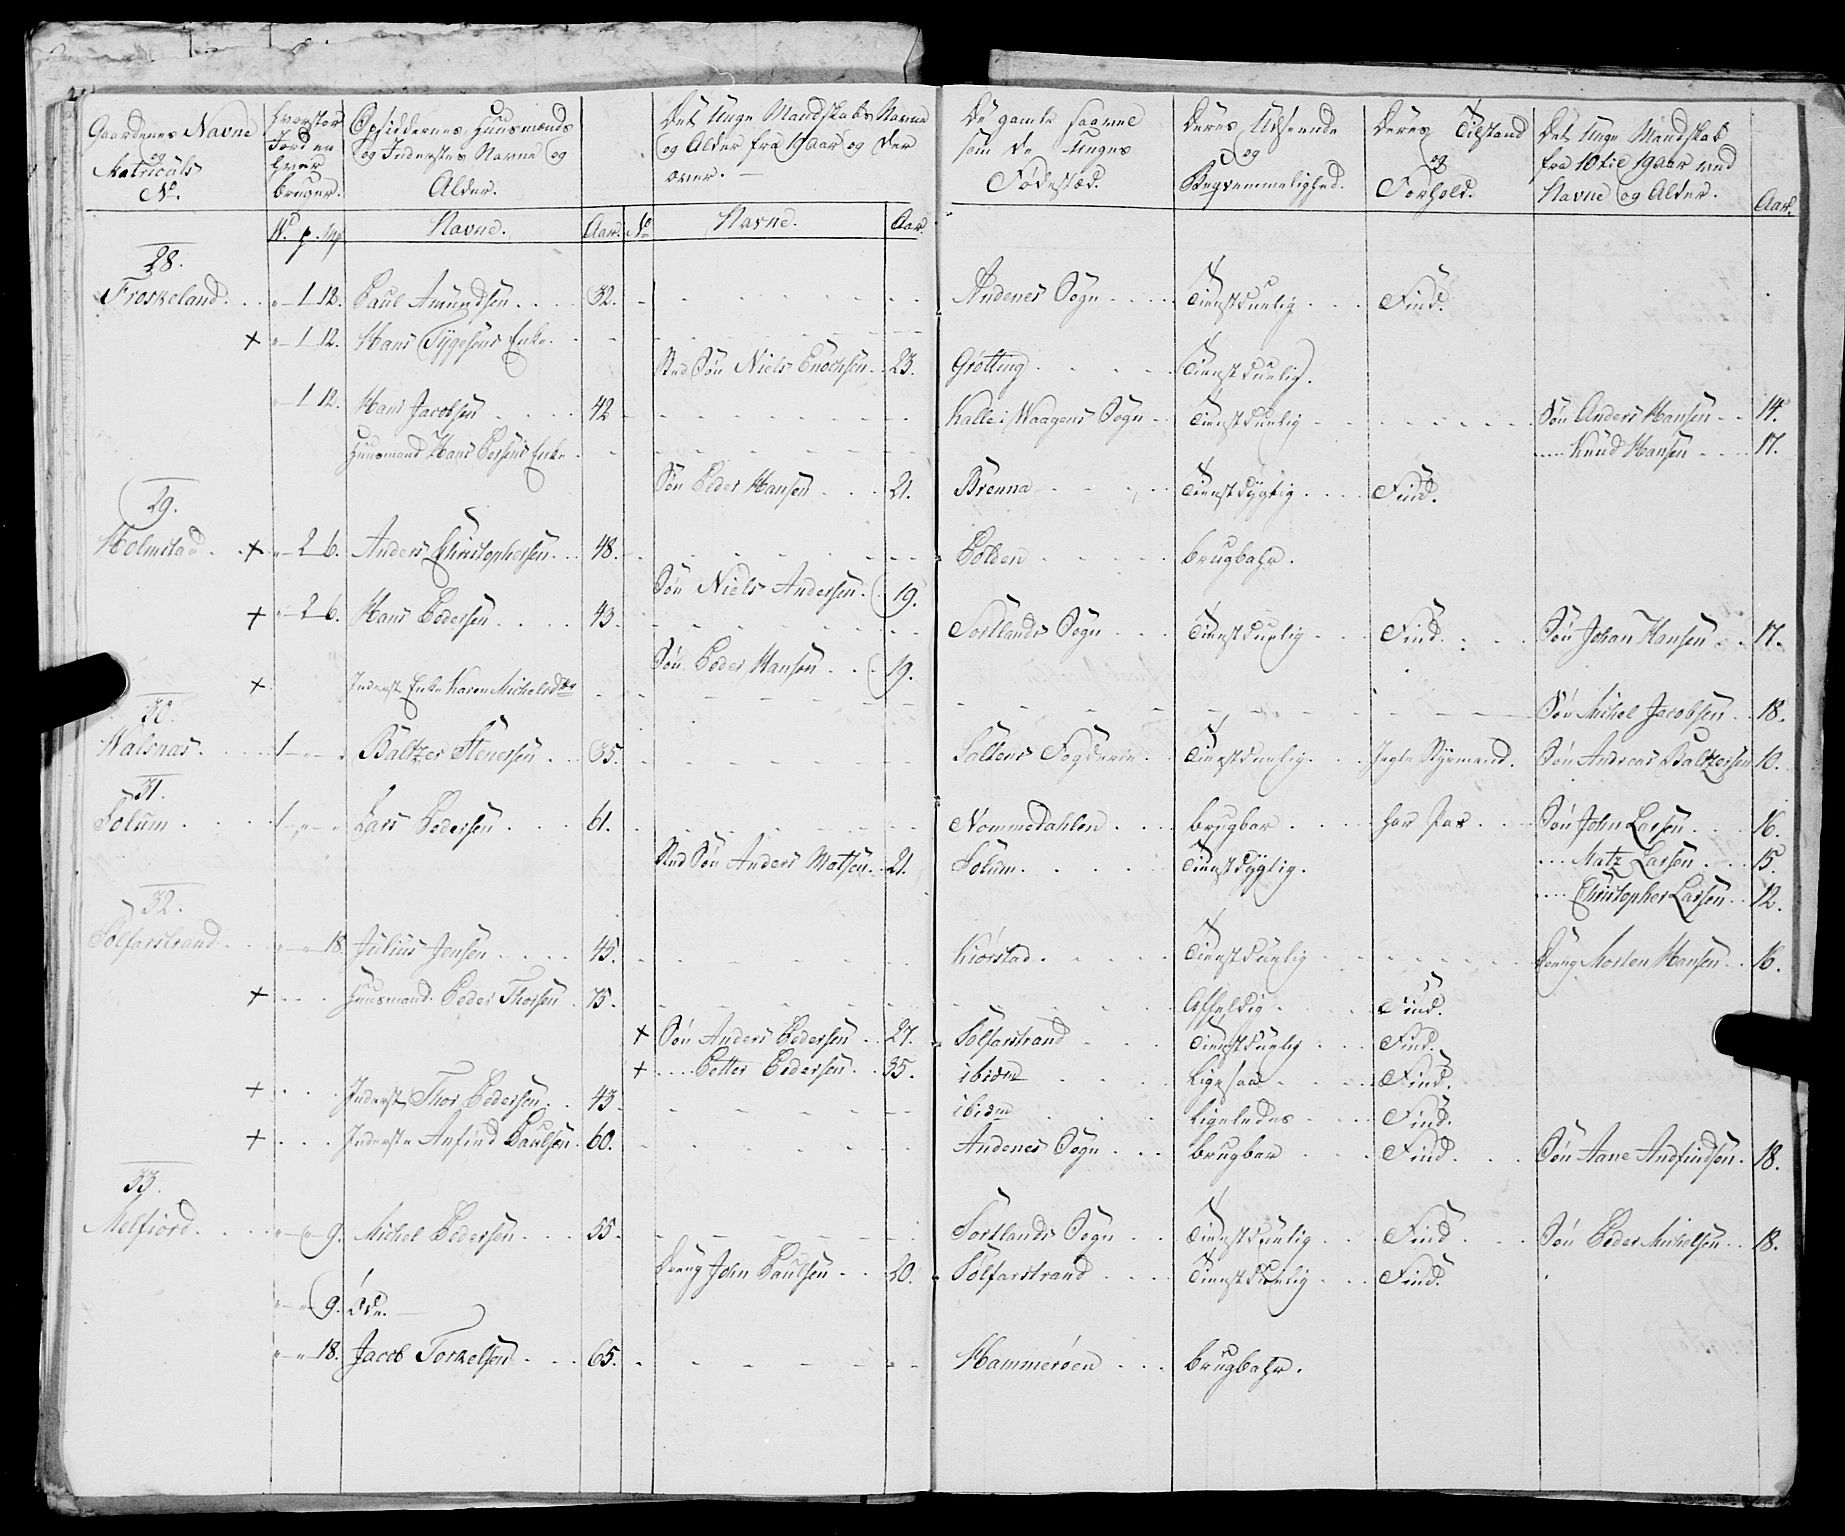 Gaardenes Navne og Matriculs No. | Hvorstor Jord en hver bruger. | Opsiddernes Huusmænds og Inderstes Navne og Alder. | Det Unge Mandskabs Navne og Alder fra 19 aar og der over. | De gamle saavel som de Unges Fødestæd. | Deres Udseende og Beqvemmelighed. | Deres Tilstand og Forhold. | Det Unge Mandskab fra 10 til 19 aar ved Navne og Alder. | Aar.
W. p. Mk | Navne. | Aar. | No | Navne. | Aar.
28.
Froskeland. | " 1 12. | Paul Amundsen | 32. | Andenes Sogn | Tienstduelig | Find.
+ " 1 12. | Hans Tygesens Enke
Sted Søn Niels Enochsen | 23. | Grøtting | Tienstduelig.
" 1 12. | Hans Jacobsen | 42 | Kalle i Waagens Sogn | Tienstduelig | Søn Anders Hansen | 14.
Huusmand Hans Persens Enke | Knud Hansen | 17.
Søn Peder Hansen | 21. | Brenna | Tienstdygtig | Find.
29.
Holmstad | + " 2 6. | Anders Christophersen | 48. | Polden | brugbahr.
Søn Niels Andersen | 19.
+ " 2 6. | Hans Pedersen | 43. | Sortlands Sogn | Tienstduelig | Find | Søn Johan Hansen | 17.
Søn Peder Hansen | 19.
+ Inderst Enke Karen Michelsdtr | Søn Michel Jacobsen | 18.
30.
Walsnas | 1 " " | Baltzer Stenersen | 35. | Saltens Fogderie | Tienstduelig | Jegte Styrmand. | Søn Andreas Baltzersen | 10.
31.
Solum | 1 " " | Lars Pedersen | 61. | Nommedahlen | brugbar | har Pas | Søn John Larsen | 16.
Sted Søn Anders Matsen | 21. | Solum | Tienstdygtig. | Matz Larsen | 15.
Christopher Larsen | 12.
32.
Solfarstrand | " " 18. | Julius Jensen | 45. | Kiørstad | Tienstduelig | Dreng Morten Hansen | 16.
+ Huusmand Peder Thorsen | 75. | Affældig | Find.
+ Søn Anders Pedersen | 27. | Solfarstrand | Tienstduelig | Find.
+ Petter Pedersen | 35. | ibidm | Ligesaa | Find.
+ Inderst Thor Pedersen | 43. | ibidm | Ligeledes | Find.
+ Inderste Anfind Paulsen | 60. | Andenes Sogn | brugbar | Find | Søn Aane Andfindsen | 18.
33.
Melfiord | " " 9. | Michel Pedersen | 55. | Sortlands Sogn | Tienstduelig | Find | Søn Peder Michelsen | 18.
Dreng John Paulsen | 20. | Solfarstrand | Tienstduelig | Find.
" " 9. | Øde.
" " 18. | Jacob Torkelsen | 65. | Hammerøen | brugbahr.